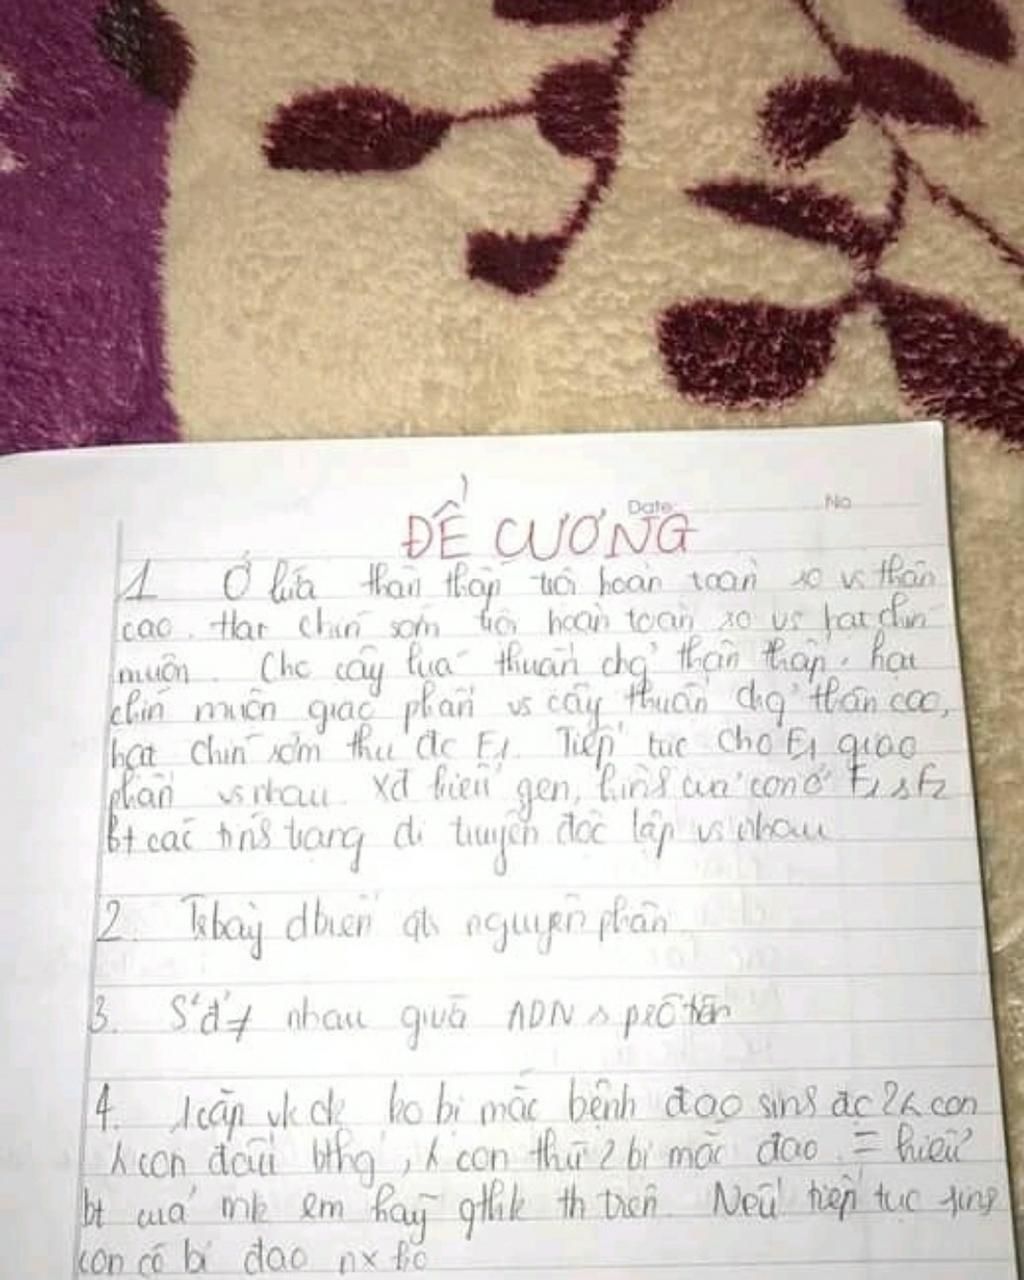 ĐỀ CƯƠNG
Date No
1 Ở lúa thân thấp trội hoàn toàn so vs thân
cao. Hạt chín sớm trội hoàn toàn so vs hạt chín
muộn. Cho cây lúa thuần chg thân thấp, hạt
chín muộn giao phấn vs cây thuần chg thân cao,
hạt chín sớm thu đc F1. Tiếp tục cho F1 giao
phấn vs nhau. Xđ kiểu gen, của con ở F1 F2
Bt các trạng di truyền độc lập vs nhau
2. biến nguyên phân
3. nhau giữa ADN prôtêin
4. 1 cặp vk ck ko bị mắc bệnh đao sinh đc 2 con
con đầu bthg, con thứ 2 bị mắc đao = hiểu
bt của mk em hãy gthik trên. Nếu tiếp tục sinh
con có bị đao ko